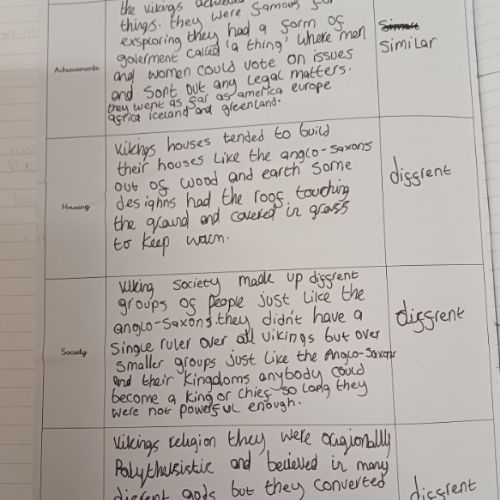 the Vikings achieved
things. they were famous for
exsproring they had a form of
goverment called 'a thing' where men
and women could vote on issues
and sort out any legal matters.
they went as far as america europe
africa iceland and greenland.
Achievements
similar
Vikings houses tended to build
their houses like the anglo-saxons
out of wood and earth some
desighns had the roof touching
the ground and covered in grass
to keep warm.
Housing
diffrent
Viking society made up diffrent
groups of people just like the
anglo-saxons. they didn't have a
single ruler over all vikings but over
smaller groups just like the Anglo-Saxons
and their kingdoms anybody could
become a king or chief so long they
were not powerful enough.
Society
diffrent
Vikings religion they were
Polytheistic and believed in many
diffrent gods but they converted
diffrent